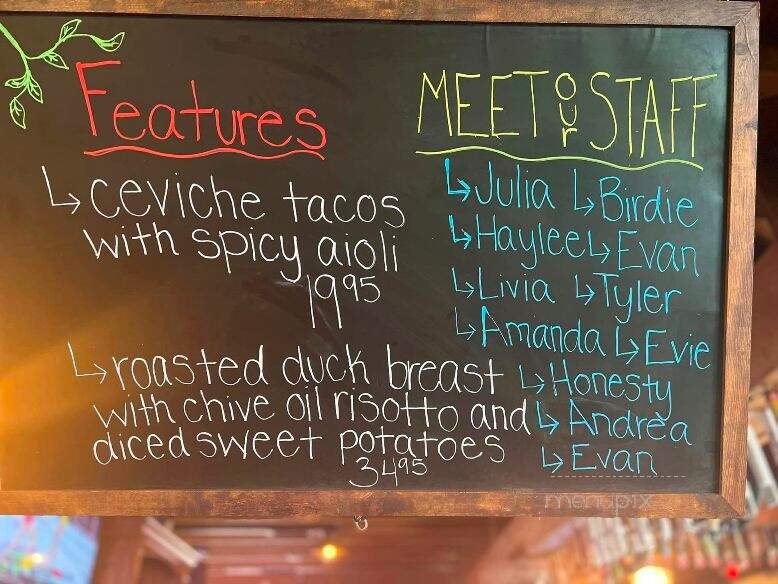 Features
↳ ceviche tacos
with spicy aioli
19 95
↳ roasted duck breast
with chive oil risotto and
diced sweet potatoes
34 95
MEET our STAFF
↳ Julia ↳ Birdie
↳ Haylee ↳ Evan
↳ Livia ↳ Tyler
↳ Amanda ↳ Evie
↳ Honesty
↳ Andrea
↳ Evan
menupix